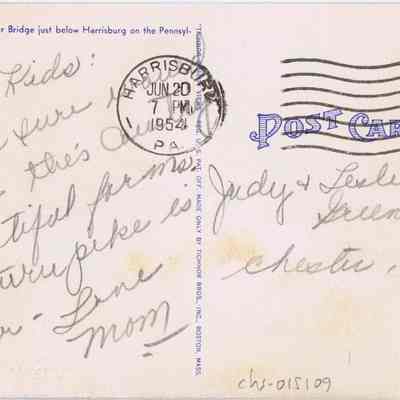 r Bridge just below Harrisburg on the Pennsyl-
Kids:
sure
the's
tiful farms.
turnpike is
- Love
Mom
HARRISBURG
JUN 20
7 PM
1954
PA.
U.S. PAT. OFF. MADE ONLY BY TICHNOR BROS., INC., BOSTON, MASS.
POST CAR
Judy & Lesli
Green
Chester,
chs-015109